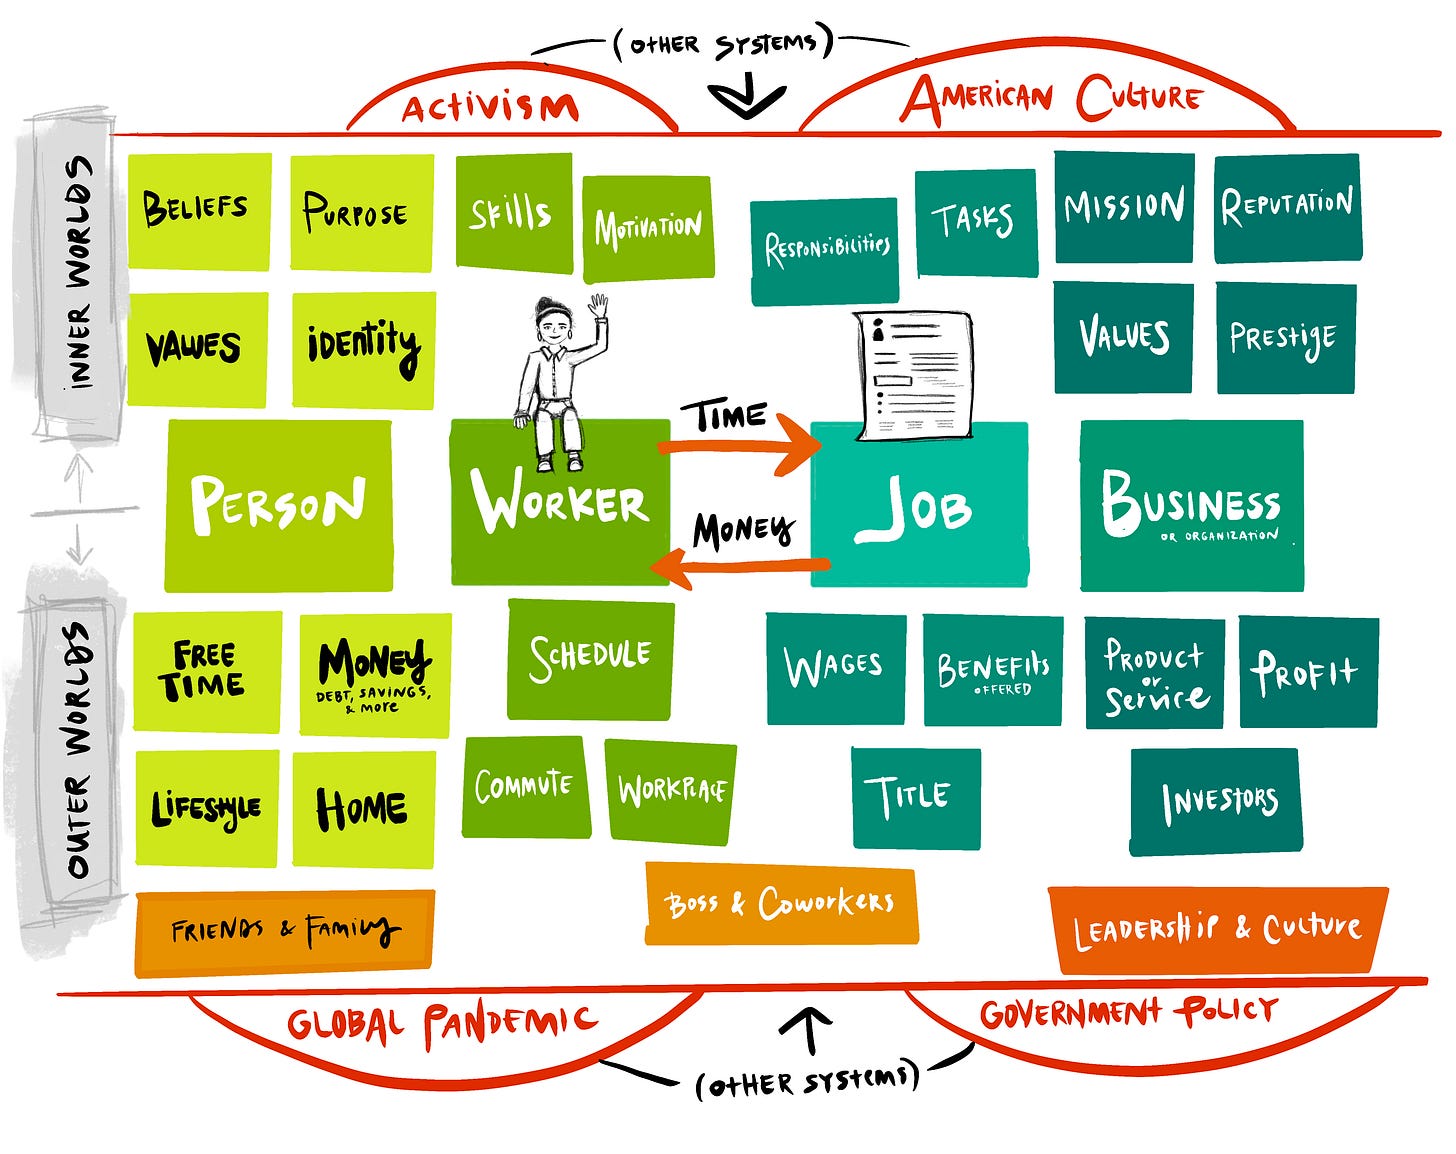 (OTHER SYSTEMS)
ACTIVISM
AMERICAN CULTURE
INNER WORLDS
BELIEFS
PURPOSE
Skills
MOTIVATION
RESPONSIBILITIES
TASKS
MISSION
REPUTATION
VALUES
IDENTITY
VALUES
PRESTIGE
TIME
PERSON
WORKER
MONEY
JOB
BUSINESS
OR ORGANIZATION
OUTER WORLDS
FREE
TIME
MONEY
DEBT, SAVINGS,
& MORE
SCHEDULE
WAGES
BENEFITS
OFFERED
PRODUCT
or
Service
PROFIT
LIFESTYLE
HOME
COMMUTE
WORKPLACE
TITLE
INVESTORS
FRIENDS & FAMILY
BOSS & COWORKERS
LEADERSHIP & CULTURE
GLOBAL PANDEMIC
GOVERNMENT POLICY
(OTHER SYSTEMS)